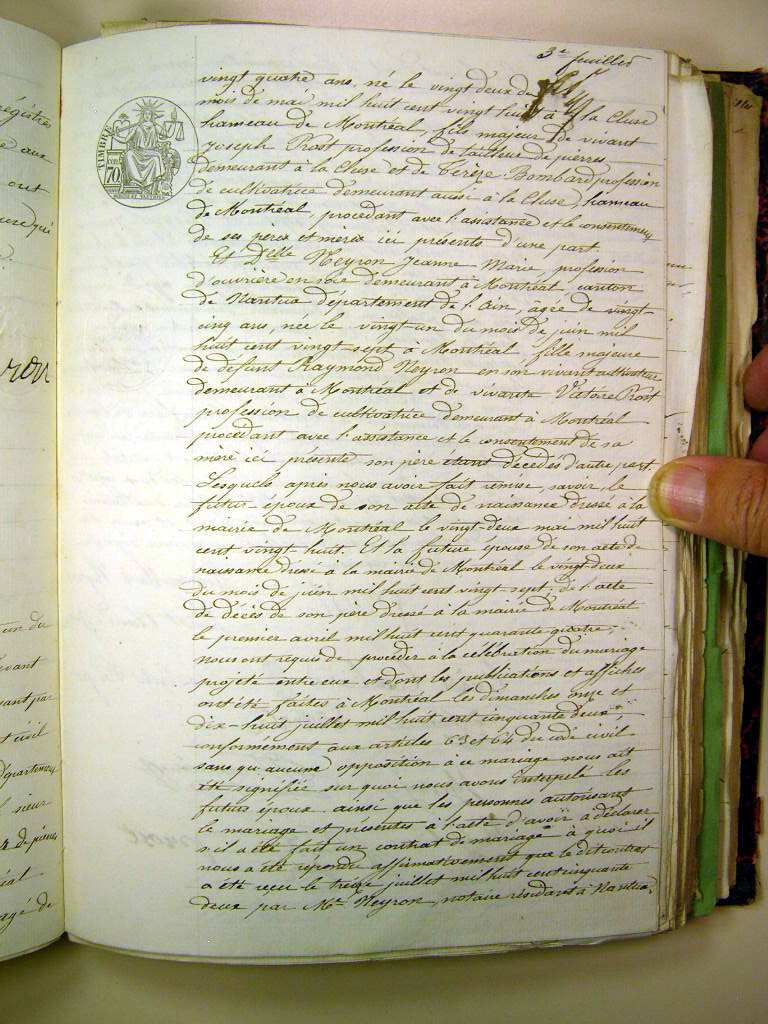 égistres
aux
ont
qui
ron
un du
vant
sant par
civil
Département
sieur
de pierres
éal
agé de
3e feuillet
TIMBRE
70
vingt quatre ans, né le vingt deux du
mois de mai mil huit cent vingt huit à la Cluse
hameau de Montréal, fils majeur de vivant
Joseph Prost profession de tailleur de pierres
demeurant à la Cluse et de Térèse Bombard profession
de cultivatrice demeurant aussi à la Cluse, hameau
de Montréal, procédant avec l'assistance et le consentement
de ses père et mère ici présents d'une part.
Et Delle Neyron Jeanne Marie, profession
d'ouvrière en soie demeurant à Montréal canton
de Nantua département de l'Ain, âgée de vingt-
cinq ans, née le vingt-un du mois de juin mil
huit cent vingt sept à Montréal, fille majeure
de défunt Raymond Neyron en son vivant cultivateur
demeurant à Montréal et de vivante Victoire Prost
profession de cultivatrice demeurant à Montréal
procédant avec l'assistance et le consentement de sa
mère ici présente son père étant décédés d'autre part.
Lesquels après nous avoir fait remise, savoir, le
futur époux de son acte de naissance dressé à la
mairie de Montréal le vingt-deux mai mil huit
cent vingt huit. Et la future épouse de son acte de
naissance dressé à la mairie de Montréal le vingt deux
du mois de juin mil huit cent vingt sept, de l'acte
de décès de son père dressé à la mairie de Montréal
le premier avril mil huit cent quarante quatre,
nous ont requis de procéder à la célébration du mariage
projeté entre eux et dont les publications et affiches
ont été faites à Montréal les dimanches onze et
dix-huit juillet mil huit cent cinquante deux,
conformément aux articles 63 et 64 du code civil
sans qu'aucune opposition à ce mariage nous ait
été signifiée sur quoi nous avons interpelé les
futurs époux ainsi que les personnes autorisant
le mariage et présentes à l'acte d'avoir à déclarer
s'il a été fait un contrat de mariage à quoi il
nous a été répondu affirmativement que le dit contrat
a été reçu le treize juillet mil huit cent cinquante
deux par Me Neyron, notaire résidant à Nantua